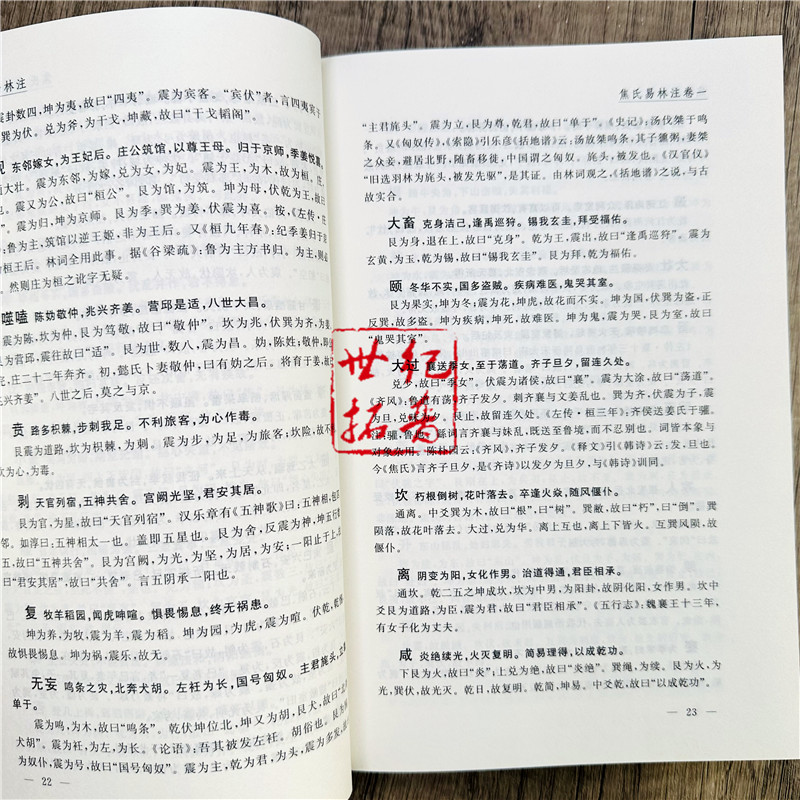 林注
震卦数四,坤为夷,故曰“四夷”。震为宾客。“宾伏”者,言四夷宾于
巽为伏。兑为斧,为干戈,坤藏,故曰“干戈韬阁”。
观 东邻嫁女,为王妃后。庄公筑馆,以尊王母。归于京师,季姜悦喜。
通大壮。震为东邻,为嫁,兑为女,为妃。震为王,为木,故为桓。庄,
震又为公,故曰“桓公”。艮为馆,为筑。坤为母,伏乾为王,故曰
震为归,坤为京师。艮为季,巽为姜,伏震为喜。按,《左传·庄
:鲁为主,筑馆以逆王姬,非为王后。又《桓九年春》:纪季姜归于
为桓王后。林词全用此事。据《谷梁疏》:鲁为主方书归。为主,则必
。然则庄为桓之讹字无疑。
噬嗑 陈妫敬仲,兆兴齐姜。营邱是适,八世大昌。
震为陈,坎为仲,艮为笃敬,故曰“敬仲”。坎为兆,伏巽为齐,为姜。
艮为营邱,震往故曰“适”。艮为世,数八,震为昌。妫,陈姓;敬仲,
,庄二十二年奔齐。初,懿氏卜妻敬仲,曰有妫之后。将育于姜,故
兆兴齐姜”。八世之后,莫之与京。
贲 路多枳棘,步刺我足。不利旅客,为心作毒。
艮震为道路,坎为枳棘,为刺。震为步,为足,为旅客;坎险,故不
坎为心,为毒。
剥 天官列宿,五神共舍。宫阙光坚,君安其居。
艮为官,为星,故曰“天官列宿”。汉乐章有《五神歌》曰:五神相,包四
邻。如淳曰:五神相太一也。盖即五星也。艮为舍,反震为神,坤五行
五,故曰“五神共舍”。艮为宫阙,为光,为坚,为居,为安;一阳止于上
“君安其居”,故曰“共舍”。言五阴承一阳也。
复 牧羊稻园,闻虎呻喧。惧畏惕息,终无祸患。
坤为养,为牧,震为羊,震为稻。坤为园,为虎,震为喧。伏乾,乾惕
故惧畏惕息。坤为祸,震乐,故无。
无妄 鸣条之灾,北奔大胡。左衽为长,国号匈奴。主君旄头,立尊
单于。
震为鸣,为木,故曰“鸣条”。乾伏坤位北,坤又为胡,艮犬,故曰“北
犬胡”。震为衽,为左,为长。《论语》:吾其被发左衽。胡俗也。艮
为奴仆,震为号,故曰“国号匈奴”。震为主,乾为君,为头,震为多发,故
— 22 —
焦氏易林注卷一
“主君旄头”。震为立,艮为尊,乾君,故曰“单于”。《史记》:汤伐桀于鸣
条。又《匈奴传》,《索隐》引乐彦《括地谱》云:汤放桀鸣条,其子獯粥,妻桀
之众妾,避居北野,随畜移徙,中国谓之匈奴。旄头,被发也。《汉官仪》
“旧选羽林为旄头,被发先驱”,是其证。由林词观之,《括地谱》之说,与古
故实合。
大畜 克身洁己,逢禹巡狩。锡我玄圭,拜受福佑。
艮为身,退在上,故曰“克身”。乾为王,震出,故曰“逢禹巡狩”。震为
玄黄,为玉,乾为锡,故曰“锡我玄圭”。艮为拜,乾为福佑。
颐 冬华不实,国多盗贼。疾病难医,鬼哭其室。
艮为果实,坤为冬;震为花,坤虎,故花而不实。坤为国,伏巽为盗,正
反巽,故多盗。坤为疾病,坤死,故难医。坤为鬼,震为哭,艮为室,故曰
“鬼哭其室”。
大过 襄送季女,至于荡道。齐子旦夕,留连久处。
兑少,故曰“季女”。伏震为诸侯,故曰“襄”。震为大涂,故曰“荡道”。
《齐风》,鲁道有荡,齐子发夕。刺齐襄与文姜乱也。巽为齐,伏震为子,震
为旦,兑昧为夕。艮止,故留连久处。《左传·桓三年》:齐侯送姜氏于驩。
驩,鲁邑。繇词言齐襄与妹乱,既送至鲁境,而不忍别也。词皆本象与
对象杂用。陈朴园云:《齐风》,齐子发夕。《释文》引《韩诗》云:发,旦也。
今《焦氏》言齐子旦夕,是《齐诗》以发夕为旦夕,与《韩诗》训同。
坎 朽根倒树,花叶落去。卒逢火焱,随风偃仆。
通离。中爻巽为木,故曰“根”,曰“树”。巽敝,故曰“朽”,曰“倒”。巽
陨落,故花叶落去。大过,兑为华。离上互也,离上下皆火。互巽风陨,故
偃仆。
离 阴变为阳,女化作男。治道得通,君臣相承。
通坎。乾二五之坤成坎,坎为中男,为阳卦,故阴化阳,女作男。坎中
爻艮为道路,为臣,震为君,故曰“君臣相承”。《五行志》:魏襄王十三年,
有女子化为丈夫。
咸 炎绝续光,火灭复明。简易理得,以成乾功。
下艮为火,故曰“炎”;上兑为绝,故曰“炎绝”。巽绳,为续。艮为火,为
光,巽伏,故光灭。乾日,故复明。乾简,坤易。中爻乾,故曰“以成乾功”。
— 23 —
世纪
拓普